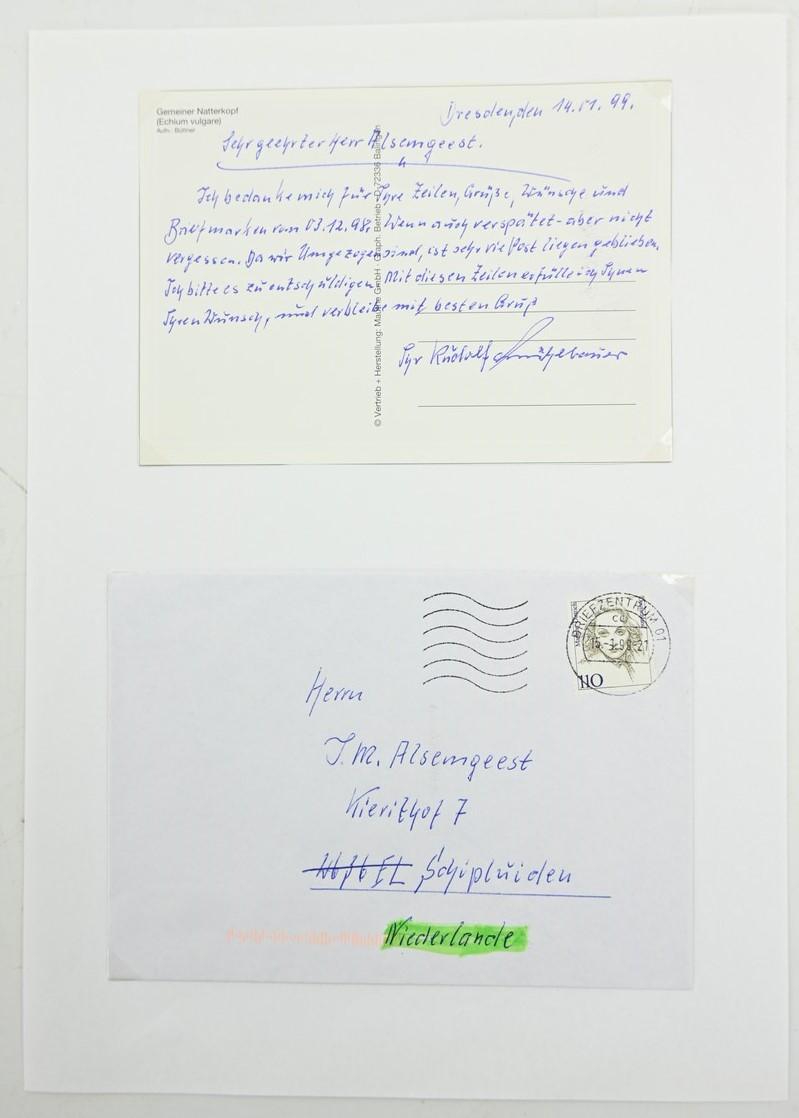 Gemeiner Natterkopf
(Echium vulgare)
Aufn.: Büttner
Dresden, den 14.01.99.
Sehr geehrter Herr Alsemgeest.
Ich bedanke mich für Ihre Zeilen, Grüße, Wünsche und
Briefmarken vom 03.12.98. Wenn auch verspätet - aber nicht
vergessen. Da wir Umgezogen sind, ist sehr viel Post liegen geblieben.
Ich bitte es zu entschuldigen. Mit diesen Zeilen erfülle ich Ihnen
Ihren Wunsch, und verbleibe mit besten Gruß
Ihr Rudolf
© Vertrieb + Herstellung: GmbH · Graph. Betrieb · D-72336
BRIEFZENTRUM 01
15.-1.99-21
110
Herrn
J.M. Alsemgeest
Kierithof 7
Schipluiden
Niederlande